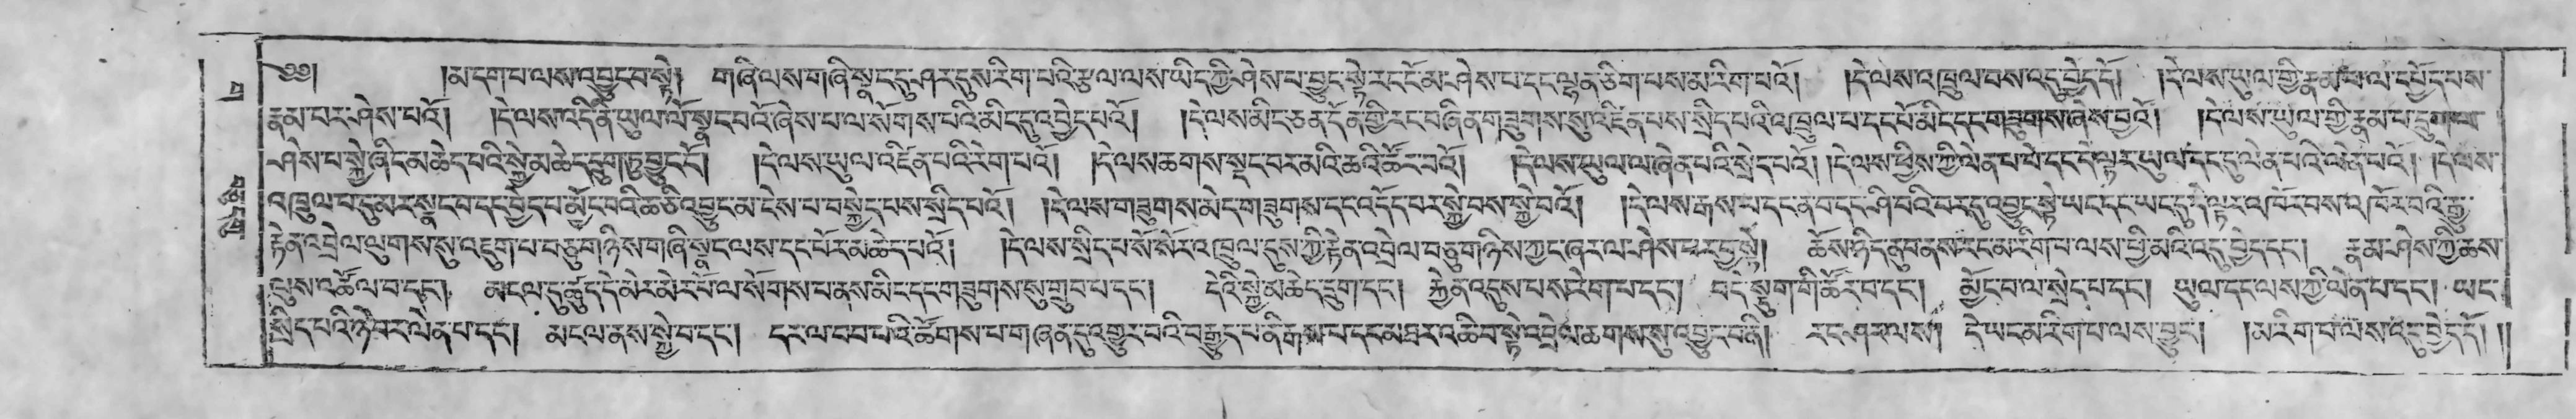 ༄༅། །མ་དག་པ་ལས་འབྱུང་བ་སྟེ། གཞི་ལས་གཞི་སྣང་དུ་ཤར་དུས་རིག་པའི་རྩལ་ལས་ཡིད་ཀྱི་ཤེས་པ་བྱུང་སྟེ་རང་ངོ་མ་ཤེས་པ་དང་ལྷན་ཅིག་པས་མ་རིག་པའོ། །དེ་ལས་འཁྲུལ་བས་འདུ་བྱེད་དོ། །དེ་ལས་ཡུལ་གྱི་རྣམ་པ་ལ་དཔྱོད་པས་
རྣམ་པར་ཤེས་པའོ། །དེ་ལས་འདི་ནི་ཡུལ་ལོ་སྣང་བའོ་ཞེས་པ་ལ་སོགས་པའི་མིང་དུ་བྱེད་པའོ། །དེ་ལས་མིང་ཅན་དོན་གྱི་རང་བཞིན་གཟུགས་སུ་འཛིན་པས་སྲིད་པའི་འཁྲུལ་པ་དང་པོ་མིང་དང་གཟུགས་ཞེས་བྱའོ། །དེ་ལས་ཡུལ་གྱི་རྣམ་པ་དྲུག་ལ་
ཤེས་པ་སྐྱེ་ཞིང་མཆེད་པའི་སྐྱེ་མཆེད་དྲུག་ཏུ་བྱུང་ངོ། །དེ་ལས་ཡུལ་འཛིན་པའི་རེག་པའོ། །དེ་ལས་ཆགས་སྡང་བར་མའི་ཆའི་ཚོར་བའོ། །དེ་ལས་ཡུལ་ལ་ཞེན་པའི་སྲེད་པའོ། །དེ་ལས་ཕྱིས་ཀྱི་ལེན་པ་པེ་དང་དེ་ལྟར་ཡུལ་དང་དུ་ལེན་པའི་ལེན་པའོ། །དེ་ལས་
འཁྲུལ་པ་དུ་མར་སྣང་བ་དང་བྱེད་པ་མྱོང་བའི་ཆ་ཅི་འབྱུང་མ་ངེས་པ་བསྐྱེད་པས་སྲིད་པའོ། །དེ་ལས་གཟུགས་མེད་གཟུགས་དང་འདོད་པར་སྐྱེ་བས་སྐྱེ་བའོ། །དེ་ལས་རྒས་པ་དང་ན་བ་དང་ཤི་བའི་བར་དུ་འབྱུང་སྟེ་ཡང་དང་ཡང་དུ་དེ་ལྟར་འཁོར་བས་འཁོར་བའི་རྒྱུ་
རྟེན་འབྲེལ་ལུགས་སུ་འཇུག་པ་བཅུ་གཉིས་གཞི་སྣང་ལས་དང་པོར་མཆེད་པའོ། །དེ་ལས་སྲིད་པ་སོ་སོར་འཁྲུལ་དུས་ཀྱི་རྟེན་འབྲེལ་བཅུ་གཉིས་ཀྱང་ཞར་ལ་ཤེས་པར་བྱ་སྟེ། ཆོས་ཉིད་ནུབ་ནས་རང་མ་རིག་པ་ལས་ཕྱི་མའི་འདུ་བྱེད་དང་། རྣམ་ཤེས་ཀྱི་ཆས་
ལུས་འཚོལ་བ་དང་། མངལ་དུ་ཚུད་དེ་མེར་མེར་པོ་ལ་སོགས་པ་ནས་མིང་དང་གཟུགས་སུ་གྲུབ་པ་དང་། དེའི་སྐྱེ་མཆེད་དྲུག་དང་། རྐྱེན་འདུས་པས་རེག་པ་དང་། བདེ་སྡུག་གི་ཚོར་བ་དང་། མྱོང་བ་ལ་སྲེད་པ་དང་། ཡུལ་དང་ལས་ཀྱི་ལེན་པ་དང་། ཡང་
སྲིད་པའི་ཉེ་བར་ལེན་པ་དང་། མངལ་ནས་སྐྱེ་བ་དང་། དར་ལ་བབ་པའི་ཚོགས་པ་གཞན་དུ་འགྱུར་བའི་བརྒྱུད་པ་ནི་རྒས་པ་དང་མཐར་འཆི་བ་སྟེ་འབྲེལ་ཆགས་སུ་འབྱུང་བའི། རང་ཤར་ལས། དེ་ཡང་མ་རིག་པ་ལས་བྱུང་། །མ་རིག་པ་ལས་འདུ་བྱེད་དོ། །